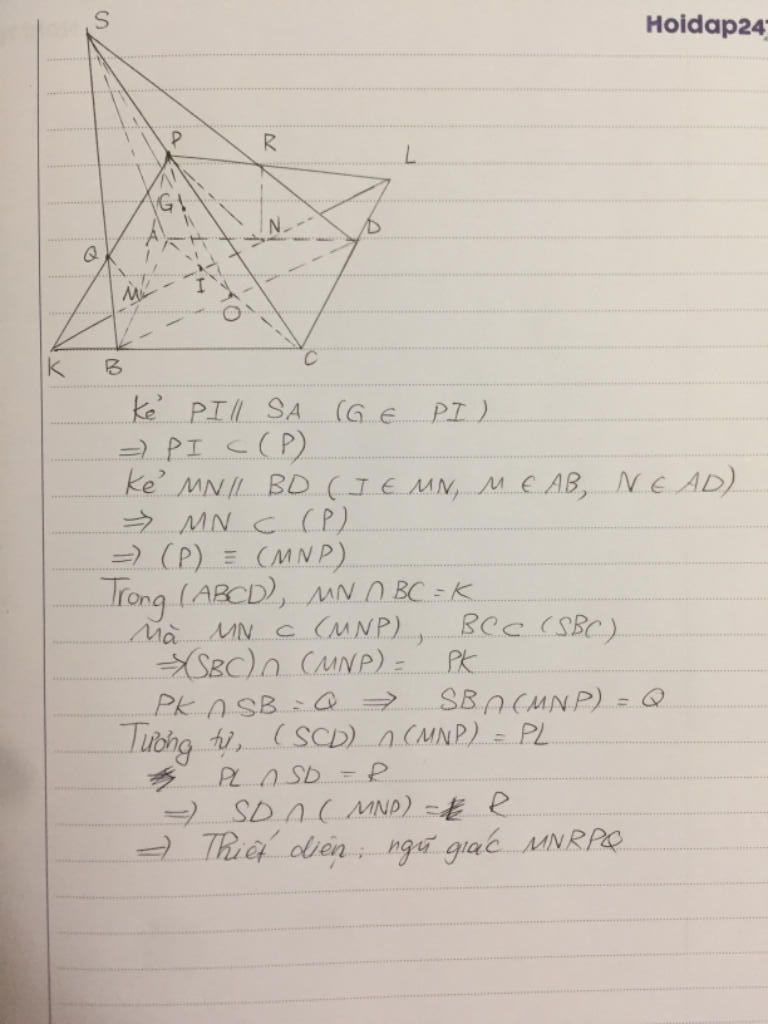 Hoidap247
S
P
R
L
G
A
N
D
Q
M
I
O
K
B
C
Kẻ PI // SA (G ∈ PI)
=> PI ⊂ (P)
Kẻ MN // BD (I ∈ MN, M ∈ AB, N ∈ AD)
=> MN ⊂ (P)
=> (P) ≡ (MNP)
Trong (ABCD), MN ∩ BC = K
Mà MN ⊂ (MNP), BC ⊂ (SBC)
=> (SBC) ∩ (MNP) = PK
PK ∩ SB = Q => SB ∩ (MNP) = Q
Tương tự, (SCD) ∩ (MNP) = PL
PL ∩ SD = R
=> SD ∩ (MNP) = R
=> Thiết diện: ngũ giác MNRPQ